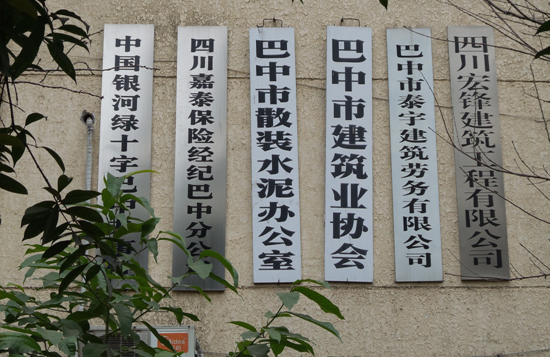 中国银河绿十字巴中办事
四川嘉泰保险经纪巴中分公
巴中市散装水泥办公室
巴中市建筑业协会
巴中市泰宇建筑劳务有限公司
四川宏锋建筑工程有限公司
Midea